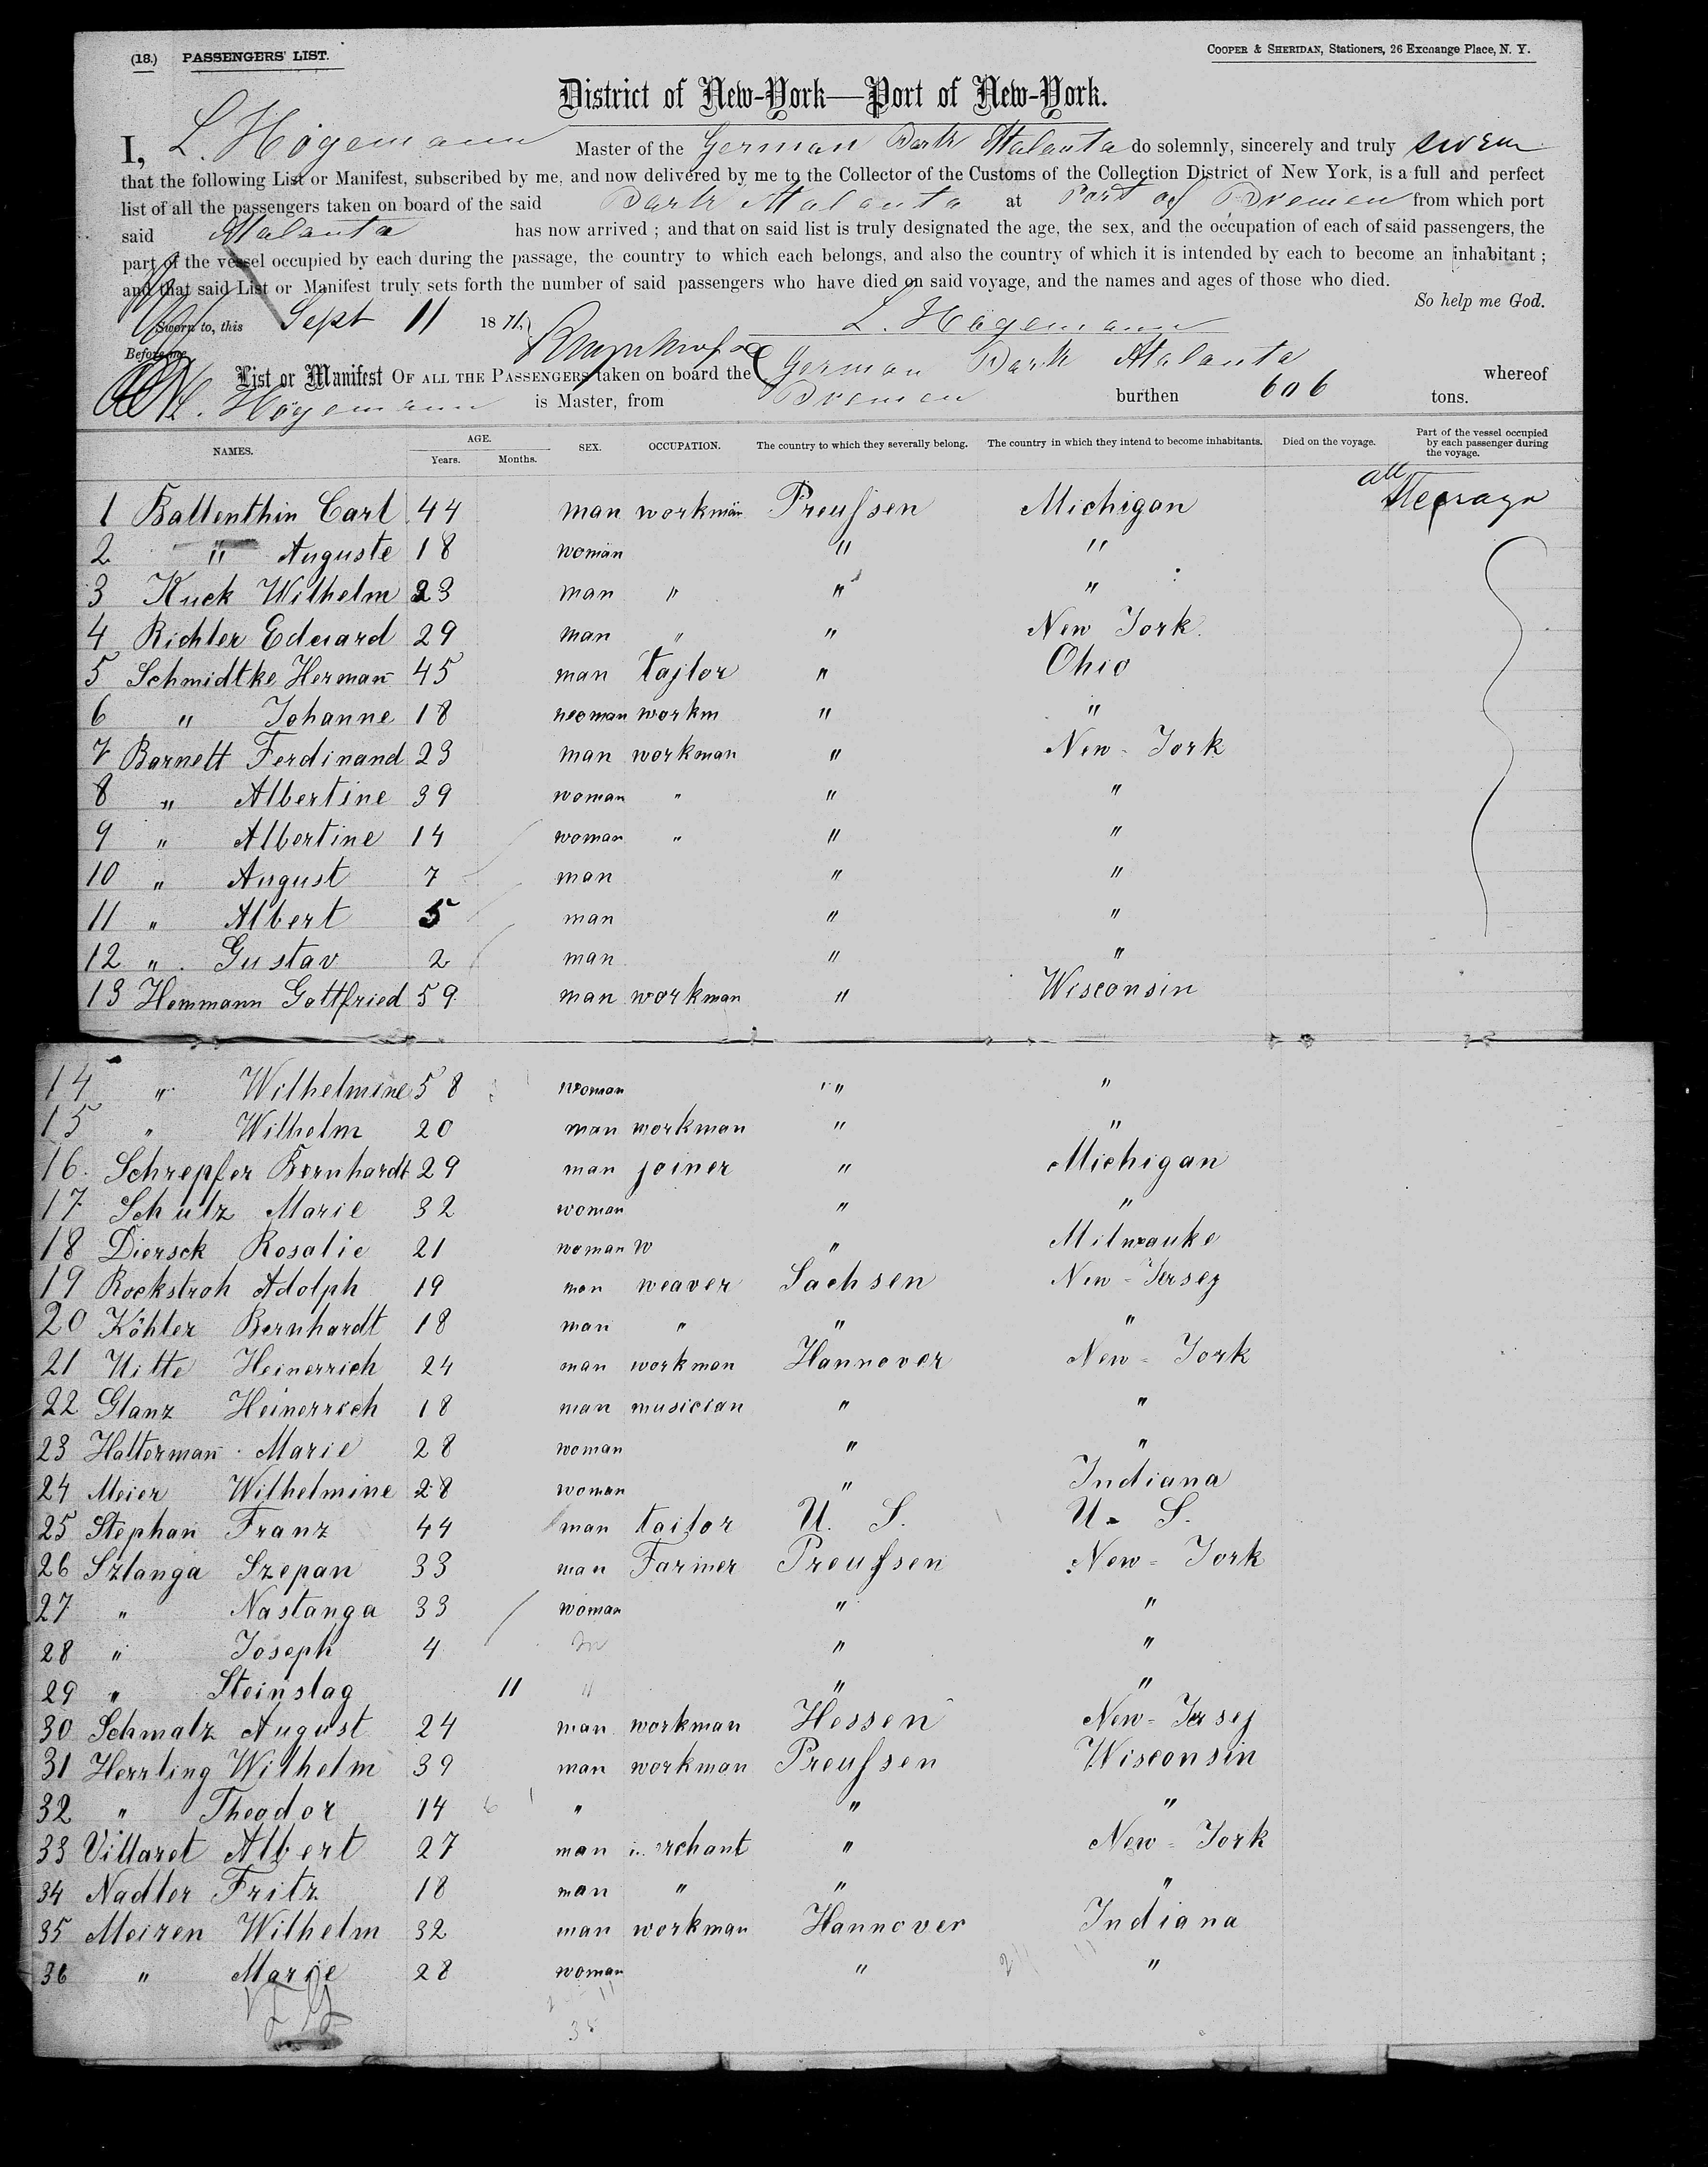 (18.) PASSENGERS' LIST. COOPER & SHERIDAN, Stationers, 26 Exchange Place, N. Y.
District of New-York—Port of New-York.
I, L. Högemann Master of the German Bark Atalanta do solemnly, sincerely and truly swear
that the following List or Manifest, subscribed by me, and now delivered by me to the Collector of the Customs of the Collection District of New York, is a full and perfect
list of all the passengers taken on board of the said Bark Atalanta at Port of Bremen from which port
said Atalanta has now arrived ; and that on said list is truly designated the age, the sex, and the occupation of each of said passengers, the
part of the vessel occupied by each during the passage, the country to which each belongs, and also the country of which it is intended by each to become an inhabitant ;
and that said List or Manifest truly sets forth the number of said passengers who have died on said voyage, and the names and ages of those who died.
So help me God.
Sworn to, this Sept 11 1871, L. Högemann
Before me
List or Manifest OF ALL THE PASSENGERS taken on board the German Bark Atalanta whereof
L. Högemann is Master, from Bremen burthen 606 tons.
NAMES. AGE. Years. Months. SEX. OCCUPATION. The country to which they severally belong. The country in which they intend to become inhabitants. Died on the voyage. Part of the vessel occupied by each passenger during the voyage.
1 Ballenthin Carl 44 man workman Preußen Michigan all Steerage
2 " Auguste 18 woman " "
3 Kuck Wilhelm 23 man " " "
4 Richter Eduard 29 man " " New York.
5 Schmidtke Herman 45 man tajlor " Ohio
6 " Johanne 18 woman workm " "
7 Barnett Ferdinand 23 man workman " New-York
8 " Albertine 39 woman " " "
9 " Albertine 14 woman " " "
10 " August 7 man " "
11 " Albert 5 man " "
12 " Gustav 2 man " "
13 Hemmann Gottfried 59 man workman " Wisconsin
14 " Wilhelmine 58 woman " "
15 " Wilhelm 20 man workman " "
16. Schrepfer Bernhardt 29 man joiner " Michigan
17 Schulz Marie 32 woman " "
18 Diersck Rosalie 21 woman w " Milwauke
19 Rockstroh Adolph 19 man weaver Sachsen New-Jersey
20 Köhler Bernhardt 18 man " " "
21 Uitte Heinerrich 24 man workman Hannover New-York
22 Glanz Heinerrich 18 man musician " "
23 Halterman Marie 28 woman " "
24 Meier Wilhelmine 28 woman " Indiana
25 Stephan Franz 44 man tailor U. S. U. S.
26 Szlanga Szepan 33 man Farmer Preußen New-York
27 " Nastanga 33 woman " "
28 " Joseph 4 m " "
29 " Steinslag 11 " " "
30 Schmalz August 24 man workman Hessen New-Jersey
31 Herrling Wilhelm 39 man workman Preußen Wisconsin
32 " Theodor 14 6 " " "
33 Villaret Albert 27 man merchant " New-York
34 Nadler Fritz 18 man " " "
35 Meiren Wilhelm 32 man workman Hannover Indiana
36 " Marie 28 woman " "